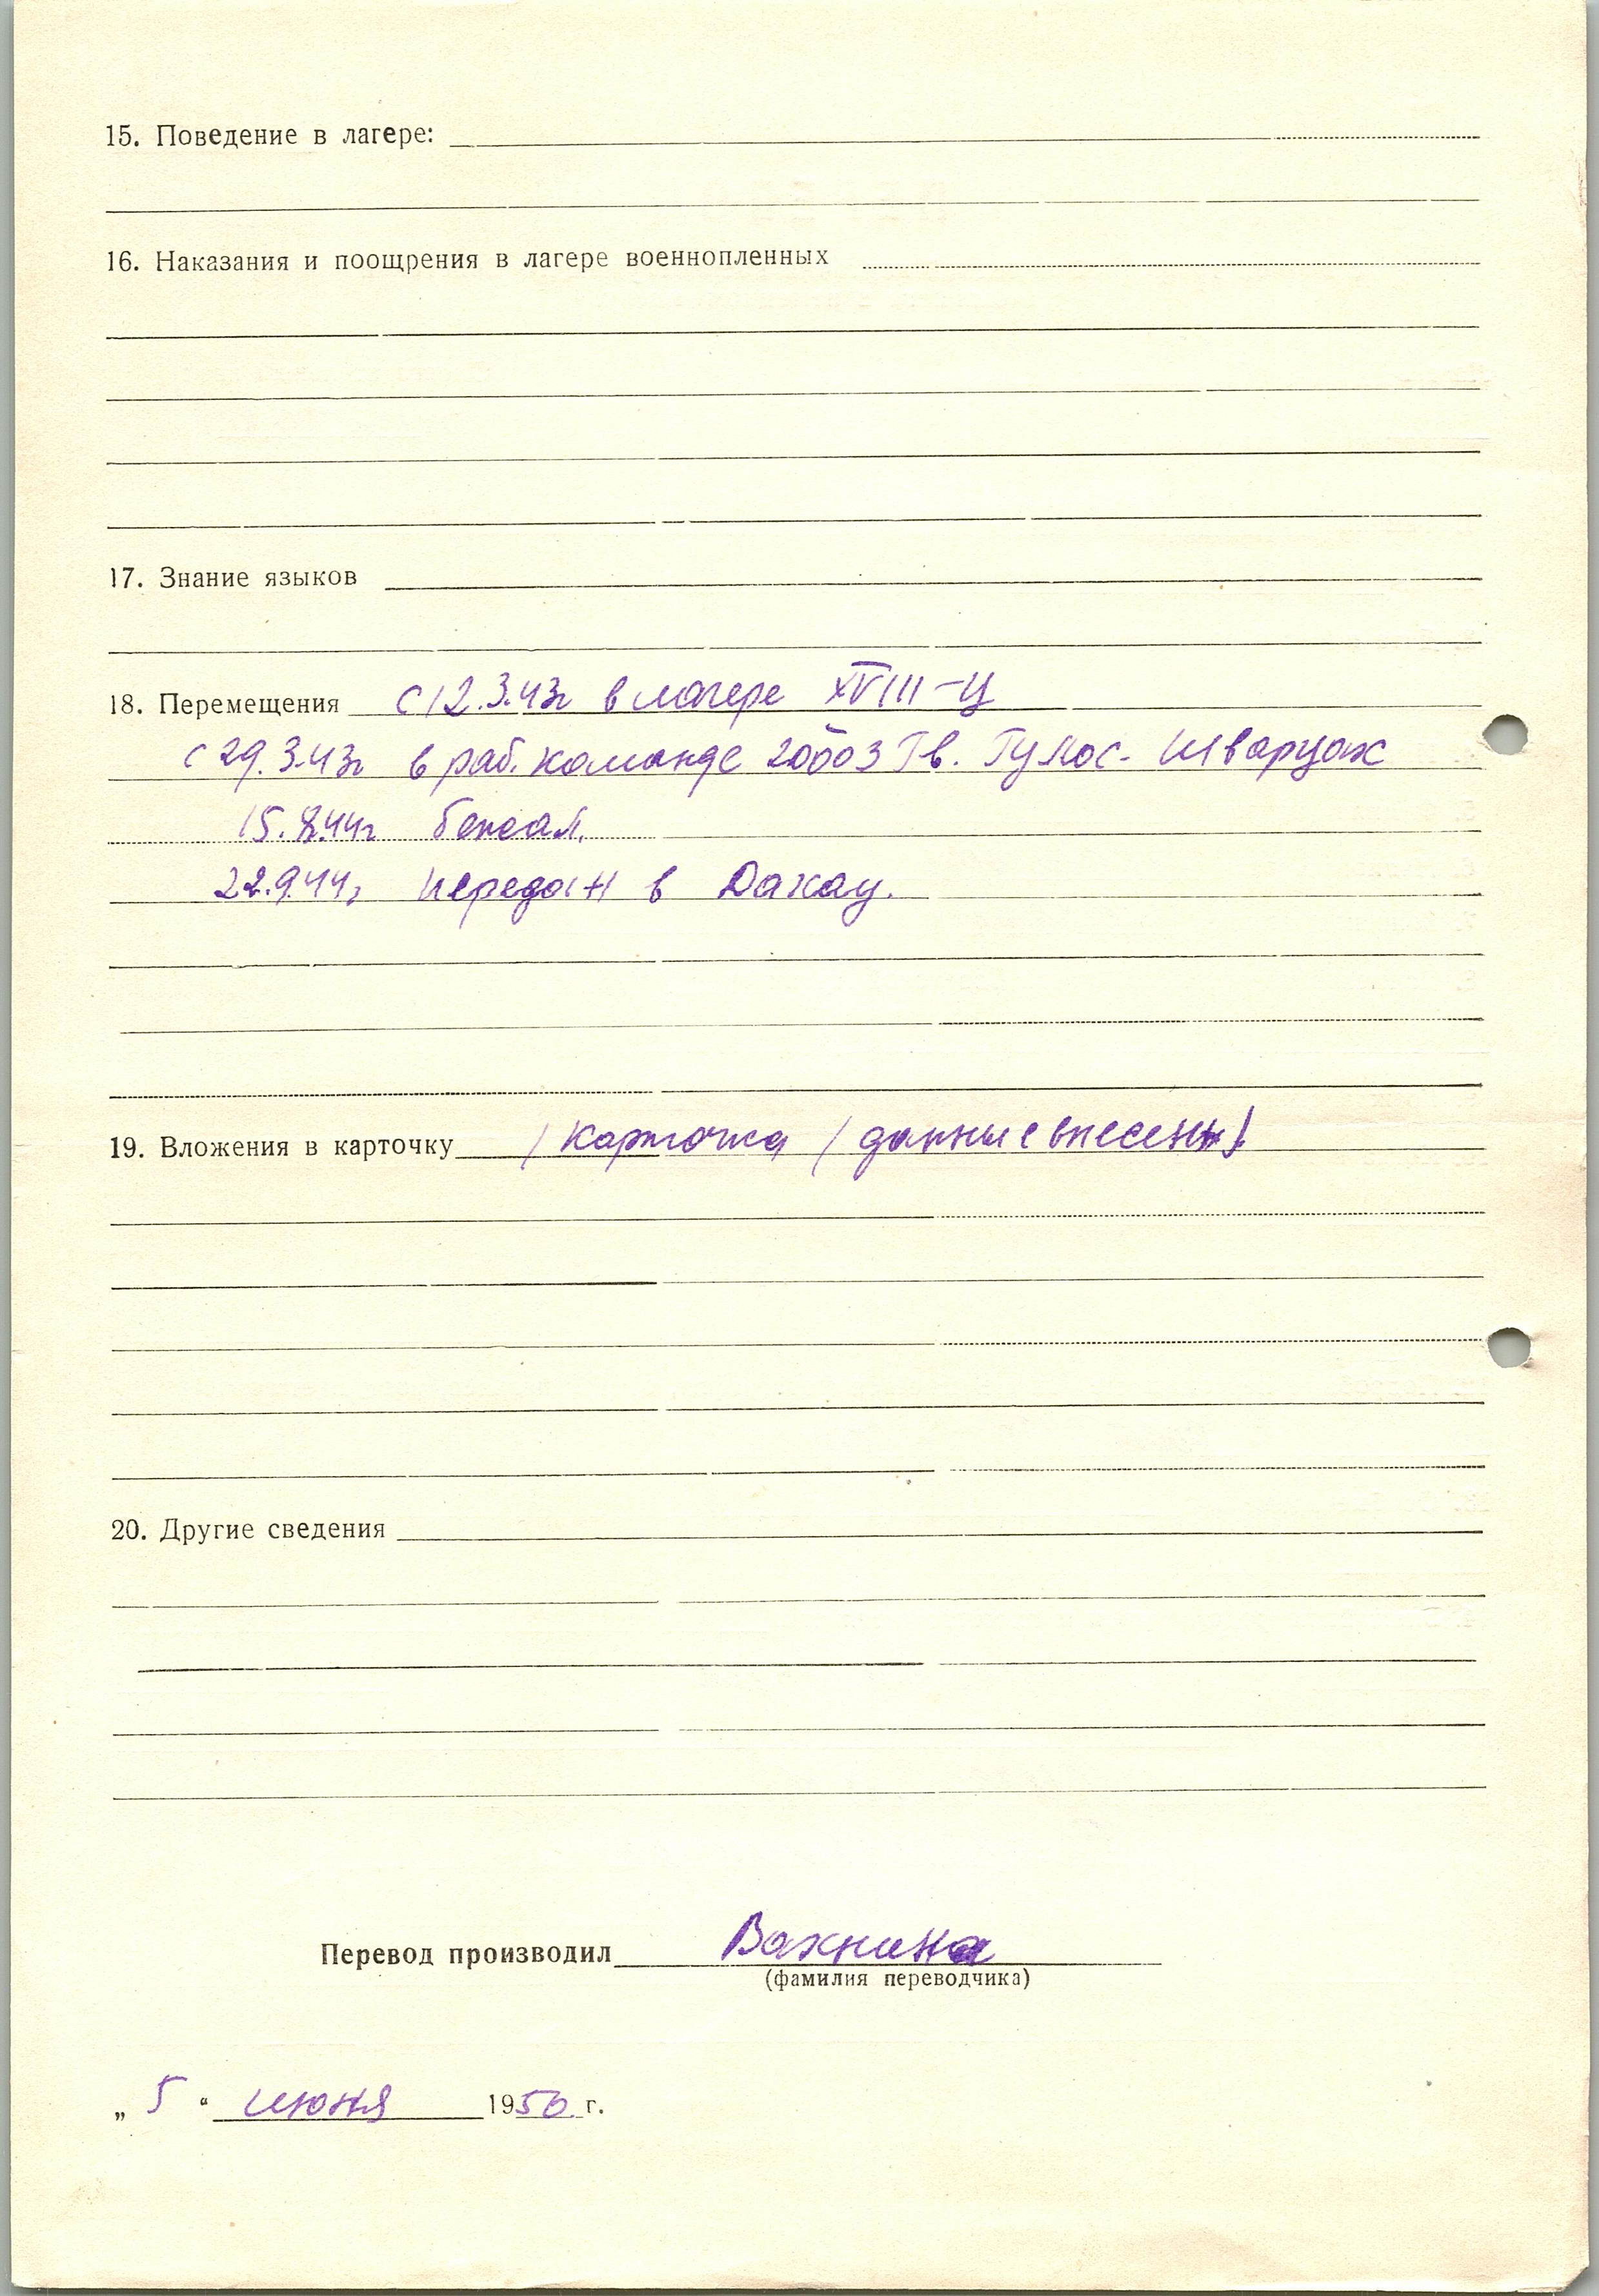 15. Поведение в лагере:
16. Наказания и поощрения в лагере военнопленных
17. Знание языков
18. Перемещения с 12.3.43г в лагере XVIII-Ц
с 29.3.43г в раб. команде Шварцах
15.8.44г бежал.
22.9.44г передан в Дахау.
19. Вложения в карточку 1 карточка / данные внесены /
20. Другие сведения
Перевод производил Вахнина
(фамилия переводчика)
„ 5 “ июня 1950 г.